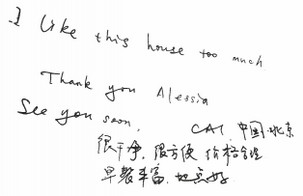 I like this house too much
Thank you Alessia
See you soon.
CAI, 中国·北京
很干净, 很方便 价格合理
早餐丰富, 地真好